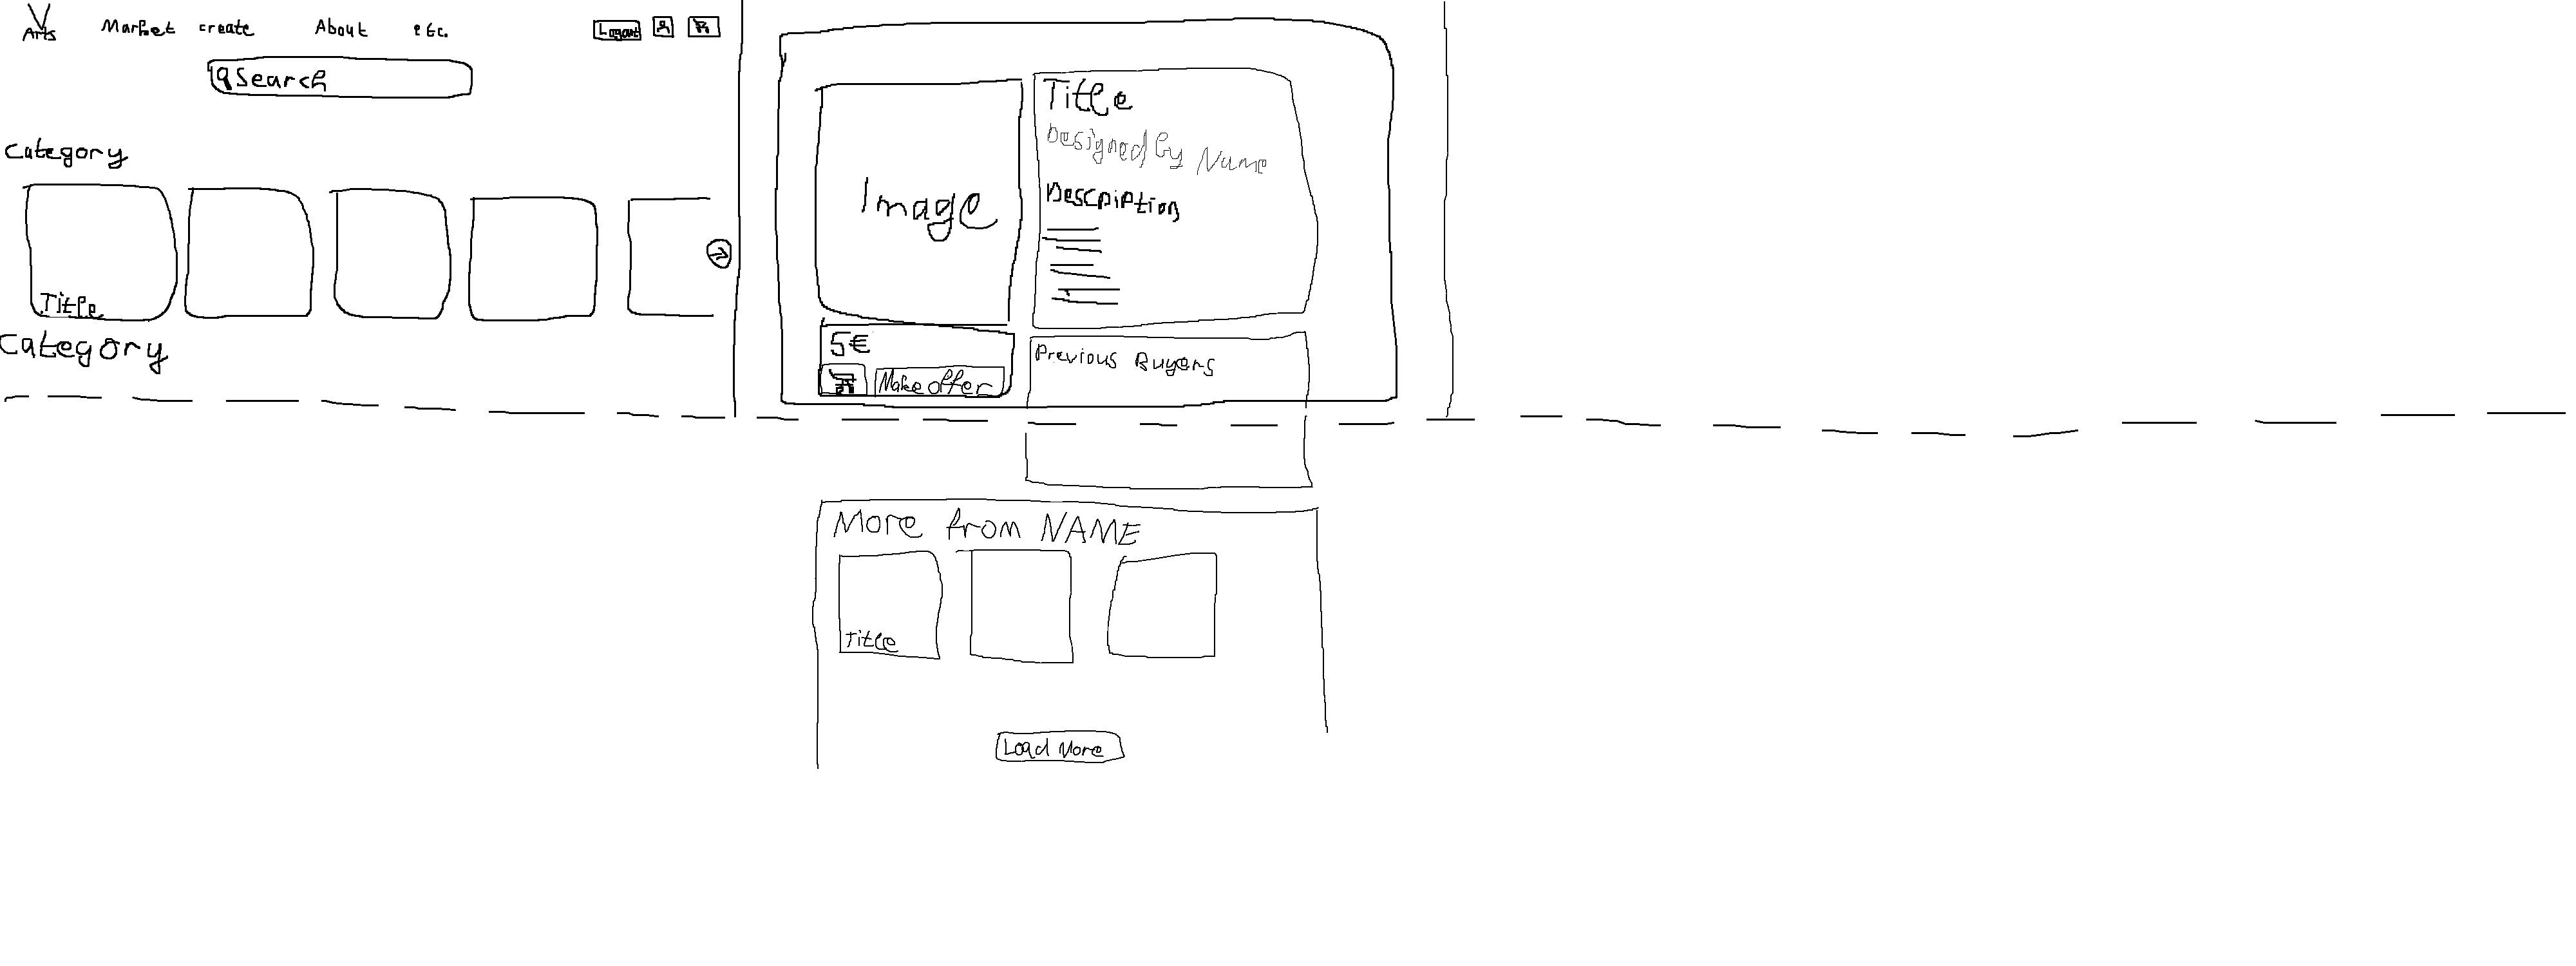 V
Arts
Market create About etc.
Logout
Search
Category
Title
Category
Image
Title
Designed by Name
Description
5€
Make offer
Previous Buyers
More from NAME
Title
Load More